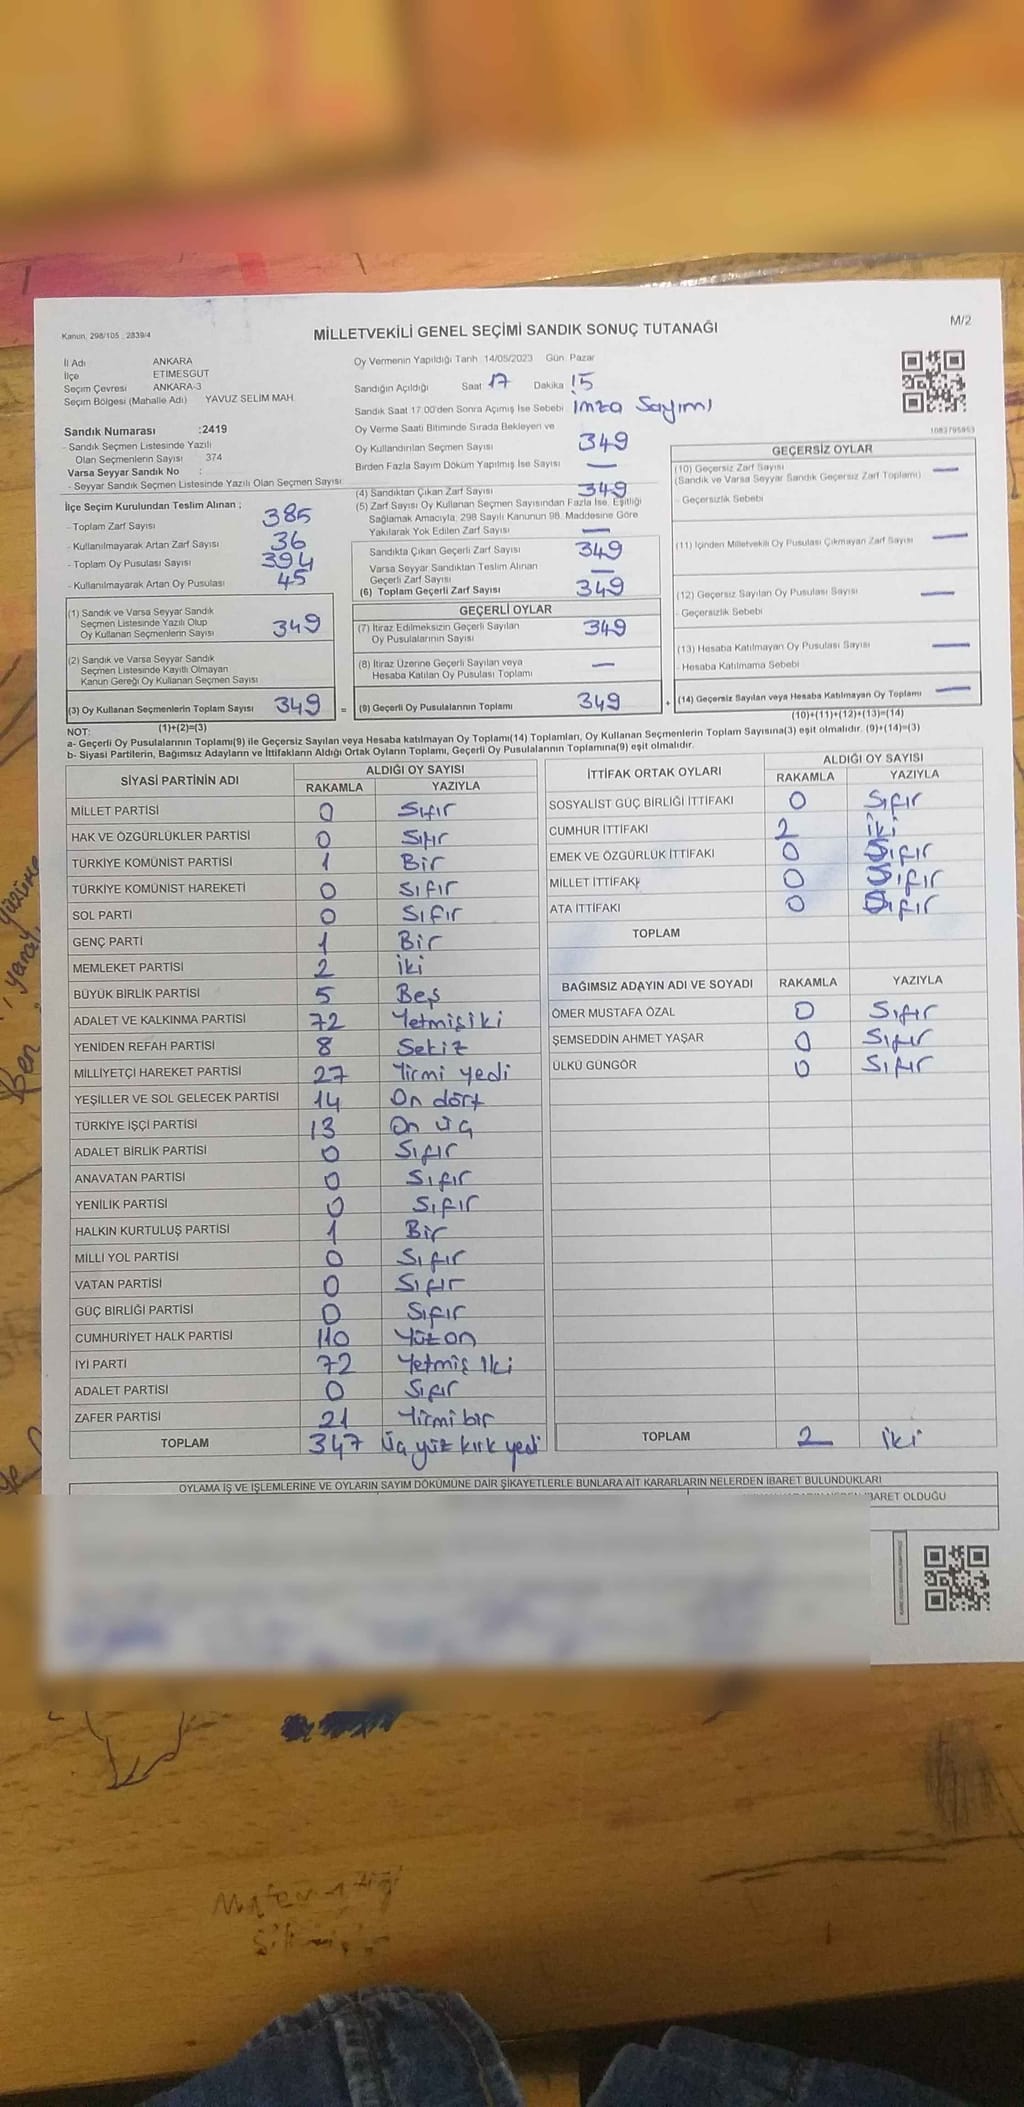 Kanun, 298/105 2839/4
MİLLETVEKİLİ GENEL SEÇİMİ SANDIK SONUÇ TUTANAĞI
M/2
İl Adı ANKARA
İlçe ETİMESGUT
Seçim Çevresi ANKARA-3
Seçim Bölgesi (Mahalle Adı) YAVUZ SELİM MAH.
Sandık Numarası :2419
- Sandık Seçmen Listesinde Yazılı
Olan Seçmenlerin Sayısı 374
Varsa Seyyar Sandık No :
- Seyyar Sandık Seçmen Listesinde Yazılı Olan Seçmen Sayısı
İlçe Seçim Kurulundan Teslim Alınan ;
- Toplam Zarf Sayısı 385
- Kullanılmayarak Artan Zarf Sayısı 36
- Toplam Oy Pusulası Sayısı 394
- Kullanılmayarak Artan Oy Pusulası 45
(1) Sandık ve Varsa Seyyar Sandık
Seçmen Listesinde Yazılı Olup
Oy Kullanan Seçmenlerin Sayısı 349
(2) Sandık ve Varsa Seyyar Sandık
Seçmen Listesinde Kayıtlı Olmayan
Kanun Gereği Oy Kullanan Seçmen Sayısı
(3) Oy Kullanan Seçmenlerin Toplam Sayısı 349 =
(1)+(2)=(3)
Oy Vermenin Yapıldığı Tarih 14/05/2023 Gün. Pazar
Sandığın Açıldığı Saat 17 Dakika 15
Sandık Saat 17.00'den Sonra Açımış İse Sebebi imza Sayımı
Oy Verme Saati Bitiminde Sırada Bekleyen ve
Oy Kullandırılan Seçmen Sayısı 349
Birden Fazla Sayım Döküm Yapılmış İse Sayısı —
(4) Sandıktan Çıkan Zarf Sayısı 349
(5) Zarf Sayısı Oy Kullanan Seçmen Sayısından Fazla İse, Eşitliği
Sağlamak Amacıyla, 298 Sayılı Kanunun 98. Maddesine Göre
Yakılarak Yok Edilen Zarf Sayısı —
Sandıkta Çıkan Geçerli Zarf Sayısı 349
Varsa Seyyar Sandıktan Teslim Alınan
Geçerli Zarf Sayısı —
(6) Toplam Geçerli Zarf Sayısı 349
GEÇERLİ OYLAR
(7) İtiraz Edilmeksizin Geçerli Sayılan
Oy Pusulalarının Sayısı 349
(8) İtiraz Üzerine Geçerli Sayılan veya
Hesaba Katılan Oy Pusulası Toplamı —
(9) Geçerli Oy Pusulalarının Toplamı 349 +
1083795953
GEÇERSİZ OYLAR
(10) Geçersiz Zarf Sayısı —
(Sandık ve Varsa Seyyar Sandık Geçersiz Zarf Toplamı)
- Geçersizlik Sebebi
(11) İçinden Milletvekili Oy Pusulası Çıkmayan Zarf Sayısı —
(12) Geçersiz Sayılan Oy Pusulası Sayısı —
- Geçersizlik Sebebi
(13) Hesaba Katılmayan Oy Pusulası Sayısı —
- Hesaba Katılmama Sebebi
(14) Geçersiz Sayılan veya Hesaba Katılmayan Oy Toplamı —
(10)+(11)+(12)+(13)=(14)
NOT:
a- Geçerli Oy Pusulalarının Toplamı(9) ile Geçersiz Sayılan veya Hesaba katılmayan Oy Toplamı(14) Toplamları, Oy Kullanan Seçmenlerin Toplam Sayısına(3) eşit olmalıdır. (9)+(14)=(3)
b- Siyasi Partilerin, Bağımsız Adayların ve İttifakların Aldığı Ortak Oyların Toplamı, Geçerli Oy Pusulalarının Toplamına(9) eşit olmalıdır.
SİYASİ PARTİNİN ADI ALDIĞI OY SAYISI
RAKAMLA YAZIYLA
MİLLET PARTİSİ 0 Sıfır
HAK VE ÖZGÜRLÜKLER PARTİSİ 0 Sıfır
TÜRKİYE KOMÜNİST PARTİSİ 1 Bir
TÜRKİYE KOMÜNİST HAREKETİ 0 Sıfır
SOL PARTİ 0 Sıfır
GENÇ PARTİ 1 Bir
MEMLEKET PARTİSİ 2 iki
BÜYÜK BİRLİK PARTİSİ 5 Beş
ADALET VE KALKINMA PARTİSİ 72 Yetmişiki
YENİDEN REFAH PARTİSİ 8 Sekiz
MİLLİYETÇİ HAREKET PARTİSİ 27 Yirmi yedi
YEŞİLLER VE SOL GELECEK PARTİSİ 14 On dört
TÜRKİYE İŞÇİ PARTİSİ 13 On üç
ADALET BİRLİK PARTİSİ 0 Sıfır
ANAVATAN PARTİSİ 0 Sıfır
YENİLİK PARTİSİ 0 Sıfır
HALKIN KURTULUŞ PARTİSİ 1 Bir
MİLLİ YOL PARTİSİ 0 Sıfır
VATAN PARTİSİ 0 Sıfır
GÜÇ BİRLİĞİ PARTİSİ 0 Sıfır
CUMHURİYET HALK PARTİSİ 110 Yüz on
İYİ PARTİ 72 Yetmiş iki
ADALET PARTİSİ 0 Sıfır
ZAFER PARTİSİ 21 Yirmi bir
TOPLAM 347 Üç yüz kırk yedi
İTTİFAK ORTAK OYLARI ALDIĞI OY SAYISI
RAKAMLA YAZIYLA
SOSYALİST GÜÇ BİRLİĞİ İTTİFAKI 0 Sıfır
CUMHUR İTTİFAKI 2 İki
EMEK VE ÖZGÜRLÜK İTTİFAKI 0 Sıfır
MİLLET İTTİFAKI 0 Sıfır
ATA İTTİFAKI 0 Sıfır
TOPLAM
BAĞIMSIZ ADAYIN ADI VE SOYADI RAKAMLA YAZIYLA
ÖMER MUSTAFA ÖZAL 0 Sıfır
ŞEMSEDDİN AHMET YAŞAR 0 Sıfır
ÜLKÜ GÜNGÖR 0 Sıfır
TOPLAM 2 iki
OYLAMA İŞ VE İŞLEMLERİNE VE OYLARIN SAYIM DÖKÜMÜNE DAİR ŞİKAYETLERLE BUNLARA AİT KARARLARIN NELERDEN İBARET BULUNDUKLARI
İBARET OLDUĞU